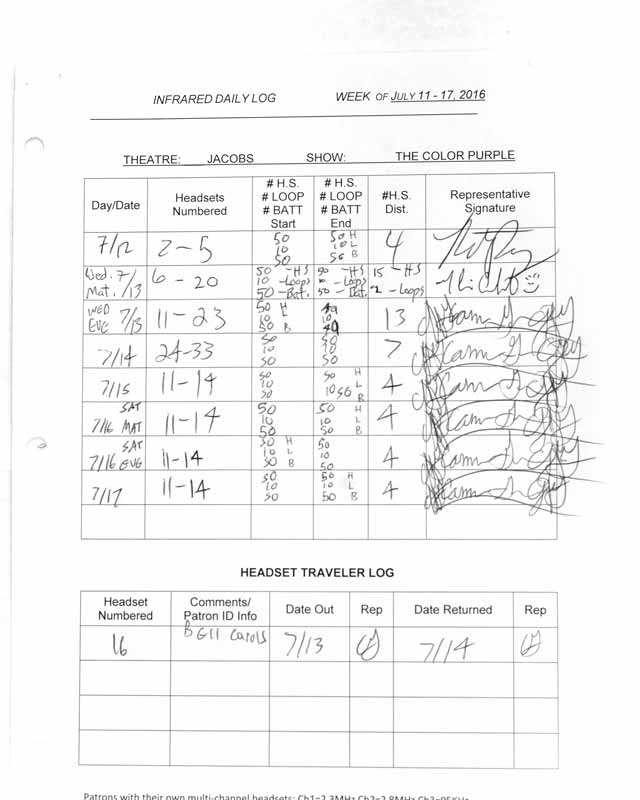 INFRARED DAILY LOG WEEK OF JULY 11 - 17, 2016
THEATRE: JACOBS SHOW: THE COLOR PURPLE
Day/Date Headsets Numbered # H.S. # LOOP # BATT Start # H.S. # LOOP # BATT End #H.S. Dist. Representative Signature
7/12 2-5 50 10 50 50 H 10 L 50 B 4
Wed. 7/13 Mat. 6-20 50 -HS 10 -Loops 50 -Bat. 50 -HS -Loops 50 -Bat. 15 -HS 2 -Loops
WED EVG 7/13 11-23 50 H 10 L 50 B 49 10 49 13
7/14 24-33 50 10 50 50 10 50 7
7/15 11-14 50 10 50 50 H 10 L 50 B 4
SAT 7/16 MAT 11-14 50 10 50 50 H 10 L 50 B 4
SAT 7/16 EVG 11-14 50 H 10 L 50 B 50 10 50 4
7/17 11-14 50 10 50 50 H 10 L 50 B 4
HEADSET TRAVELER LOG
Headset Numbered Comments/ Patron ID Info Date Out Rep Date Returned Rep
16 7/13 7/14
Patrons with their own multi-channel headsets: Ch1=2.3MHz Ch2=2.8MHz Ch3=95KHz